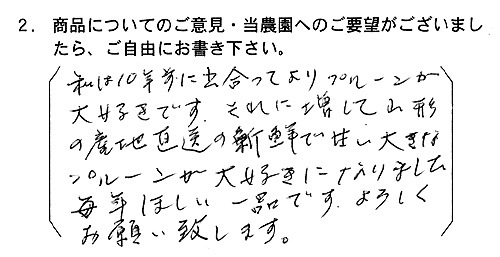 2. 商品についてのご意見・当農園へのご要望がございまし
たら、ご自由にお書き下さい。
私は10年前に出合ってよりプルーンが
大好きです。それに増して山形
の産地直送の新鮮で甘い大きな
プルーンが大好きになりました
毎年ほしい一品です。よろしく
お願い致します。